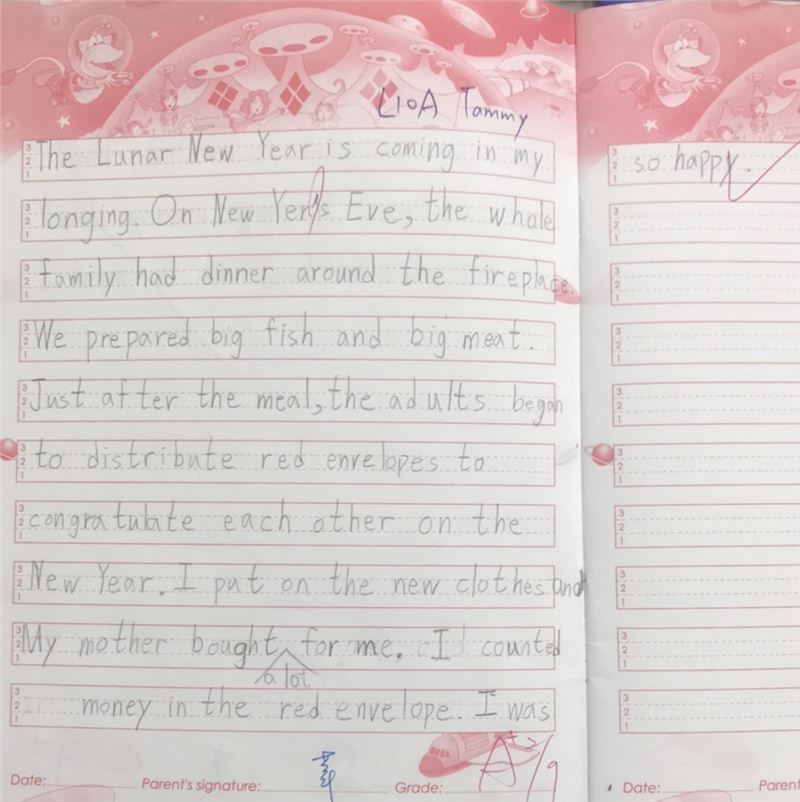 L10A Tammy
The Lunar New Year is coming in my
longing. On New Yer's Eve, the whole
family had dinner around the fireplace.
We prepared big fish and big meat.
Just after the meal, the adults began
to distribute red envelopes to
congratulate each other on the
New Year. I put on the new clothes and
My mother bought for me. I counted
a lot
money in the red envelope. I was
Date: Parent's signature: Grade: A+2/9
so happy.
Date: Parent